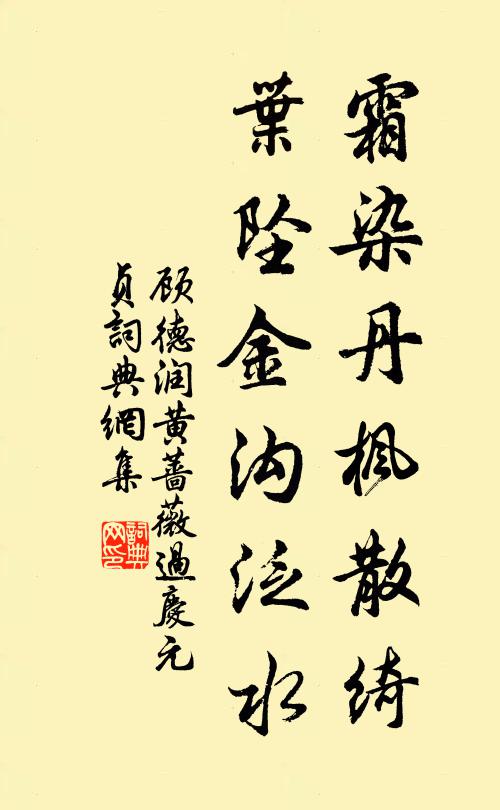 霜染丹枫散绮
葉坠金沟泛水
顾德润黄蔷薇過慶元
贞詞典網集
詞典
网印